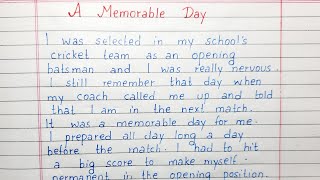 A Memorable Day
I was selected in my school's
cricket team as an opening
batsman and I was really nervous.
I still remember that day when
my coach called me up and told
that I am in the next match.
It was a memorable day for me.
I prepared all day long a day
before the match. I had to hit
a big score to make myself
permanent in the opening position.